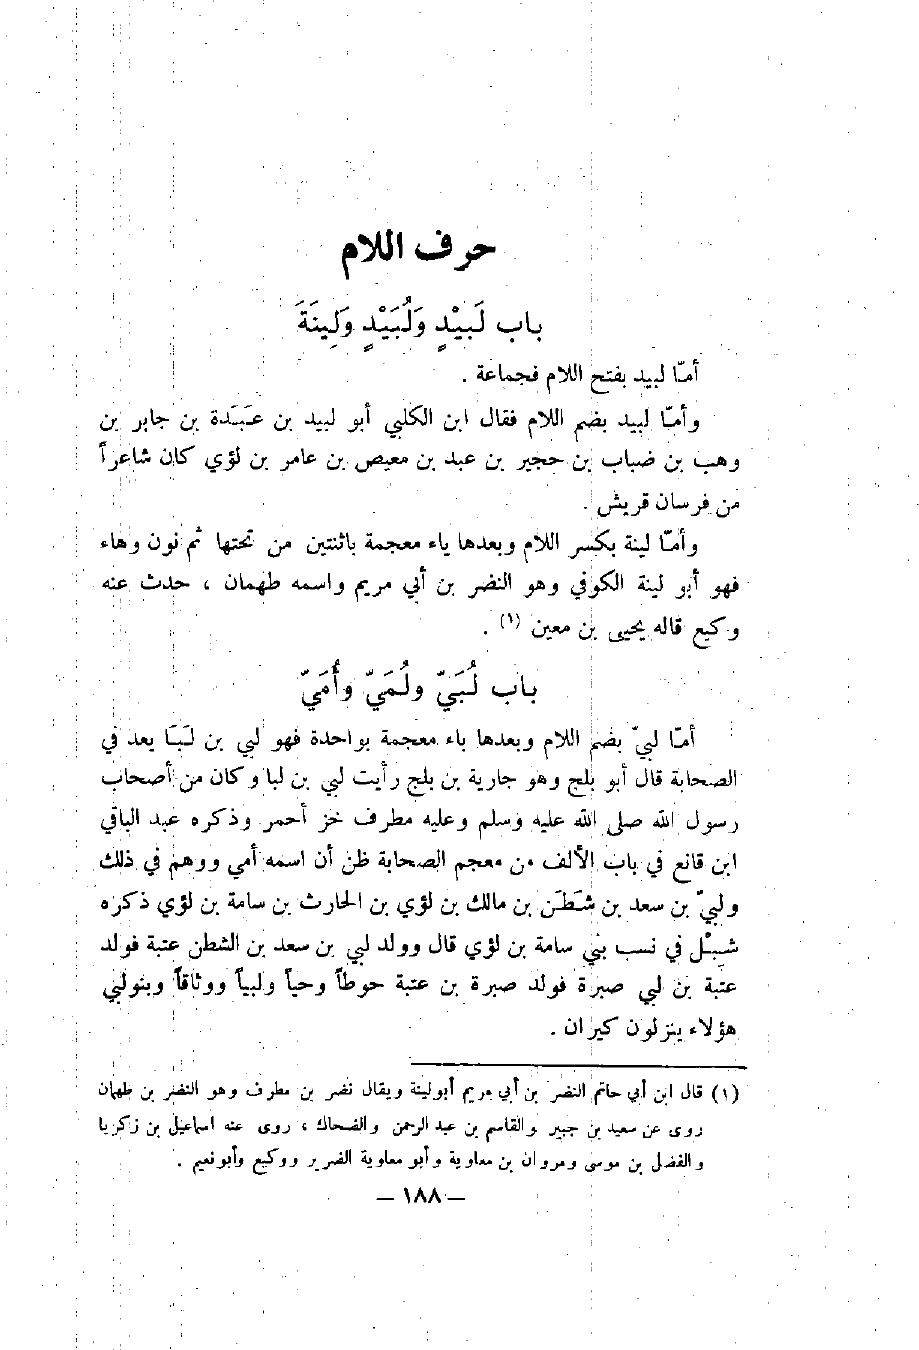 حرف اللام
باب لَبيْدٍ وَلُبَيْدٍ وَلِينَةَ
أمّا لبيد بفتح اللام فجماعة .
وأمّا لبيد بضم اللام فقال ابن الكلبي أبو لبيد بن عَبَدَة بن جابر بن
وهب بن ضباب بن حجير بن عبد بن معيص بن عامر بن لؤي كان شاعراً
من فرسان قريش .
وأمّا لينة بكسر اللام وبعدها ياء معجمة باثنتين من تحتها ثم نون وهاء
فهو أبو لينة الكوفي وهو النضر بن أبي مريم واسمه طهمان ، حدث عنه
وكيع قاله يحيى بن معين (١) .
باب لُبَيّ ولُمَيّ وأُمَيّ
أمّا لبيّ بضم اللام وبعدها باء معجمة بواحدة فهو لبي بن لَبَا يعد في
الصحابة قال أبو بلج وهو جارية بن بلج رأيت لبي بن لبا وكان من أصحاب
رسول الله صلى الله عليه وسلم وعليه مطرف خز أحمر وذكره عبد الباقي
ابن قانع في باب الألف من معجم الصحابة ظن أن اسمه أمي ووهم في ذلك
ولبيّ بن سعد بن شَطَن بن مالك بن لؤي بن الحارث بن سامة بن لؤي ذكره
شبْل في نسب بني سامة بن لؤي قال وولد لبي بن سعد بن الشطن عتبة فولد
عتبة بن لبي صبرة فولد صبرة بن عتبة حوطاً وحياً ولبياً ووثاقاً وبنولبي
هؤلاء ينزلون كيران .
(١) قال ابن أبي حاتم النضر بن أبي مريم أبولينة ويقال نضر بن مطرف وهو النضر بن طهمان
روى عن سعيد بن جبير والقاسم بن عبد الرحمن والضحاك ، روى عنه اسماعيل بن زكريا
والفضل بن موسى ومروان بن معاوية وأبو معاوية الضرير ووكيع وأبونعيم .
— ١٨٨ —